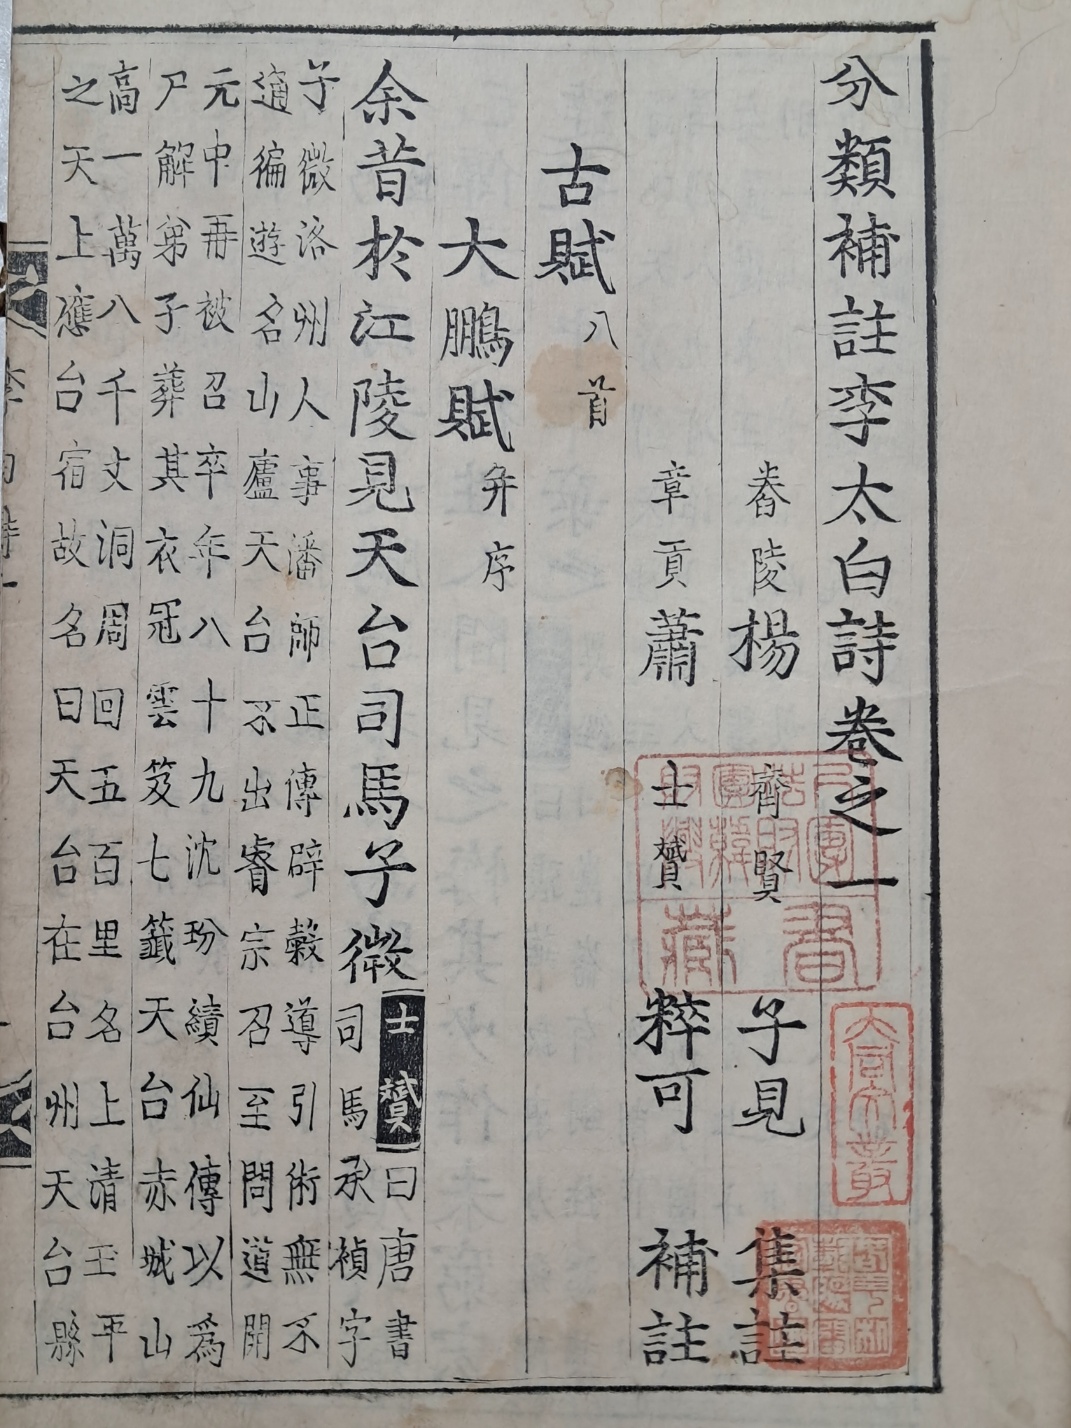 分類補註李太白詩卷之一
舂陵楊齊賢子見集註
章貢蕭士贇粹可補註
古賦八首
大鵬賦并序
余昔於江陵見天台司馬子微
士贇曰唐書
司馬承禎字
子微洛州人事潘師正傳辟穀導引術無不
適徧遊名山廬天台不出睿宗召至問道開
元中再被召卒年八十九沈玢續仙傳以爲
尸解弟子葬其衣冠雲笈七籤天台赤城山
高一萬八千丈洞周回五百里名上清玉平
之天上應台宿故名曰天台在台州天台縣